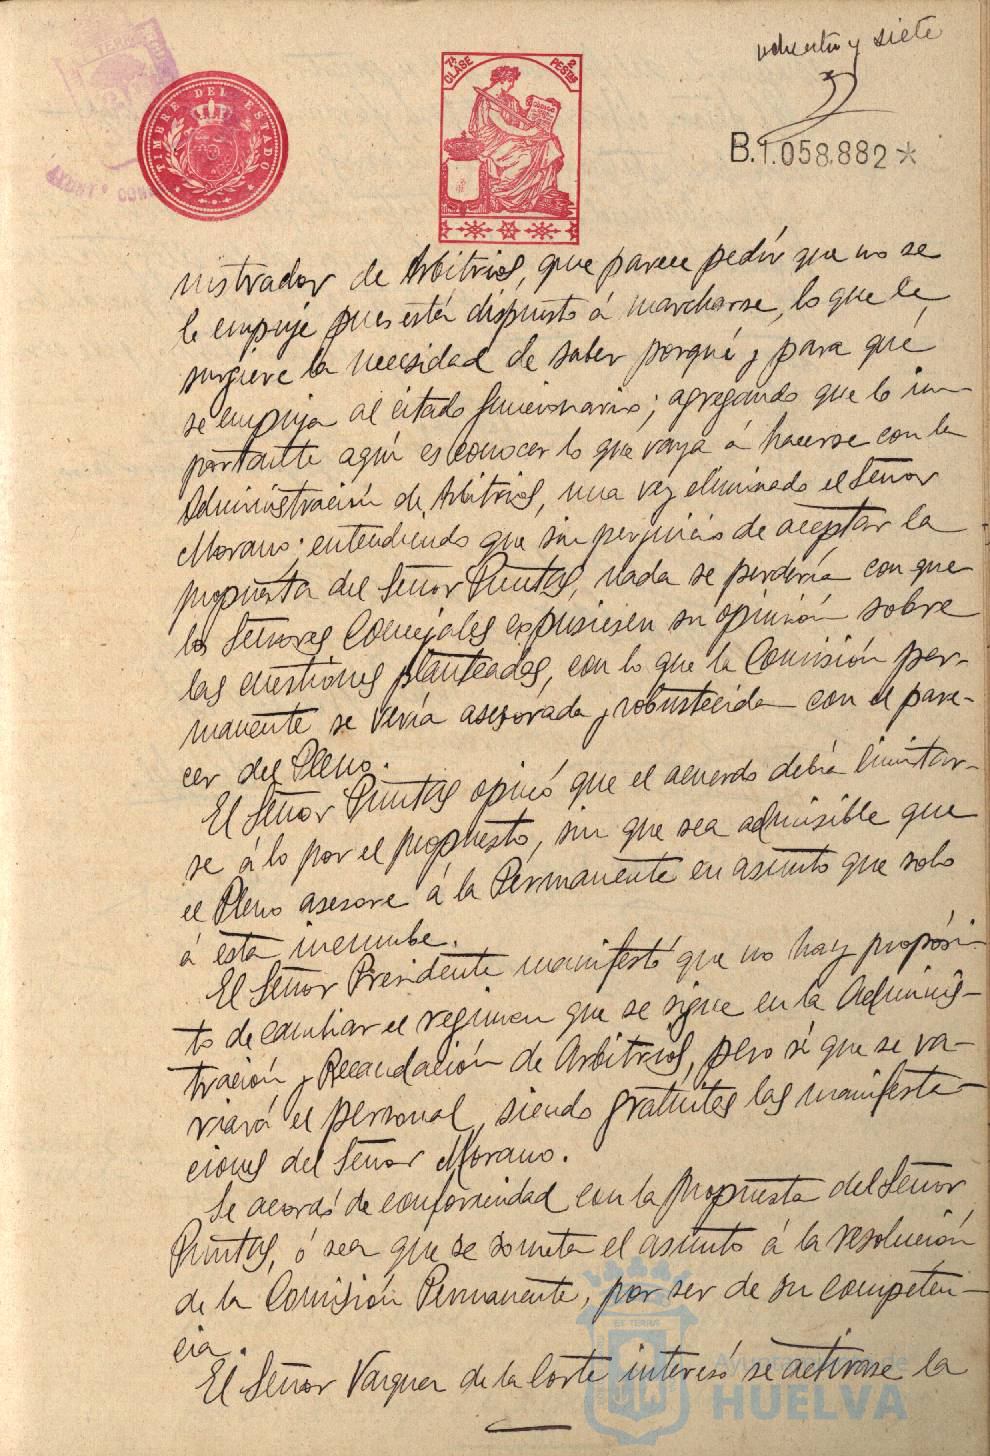 ochenta y siete
TIMBRE DEL ESTADO
7ª CLASE 2 PESTAS
CODIGO
B.1.058.882*
nistrador de Arbitrios, que parece pedir que no se
le empuje pues está dispuesto á marcharse, lo que le
sugiere la necesidad de saber porqué y para qué
se empuja al citado funcionario; agregando que lo im-
portante aquí es conocer lo que vaya á hacerse con la
Administración de Arbitrios, una vez eliminado el Señor
Morano; entendiendo que sin perjuicio de aceptar la
propuesta del Señor Puntas, nada se perdería con que
los Señores Concejales expusiesen su opinión sobre
las cuestiones planteadas, con lo que la Comisión per-
manente se vería asesorada y robustecida con el pare-
cer del Pleno.
El Señor Puntas opinó que el acuerdo debía limitar-
se á lo por el propuesto, sin que sea admisible que
el Pleno asesore á la Permanente en asunto que solo
á esta incumbe.
El Señor Presidente manifestó que no hay propósi-
to de cambiar el regimen que se sigue en la Adminis-
tración y Recaudación de Arbitrios, pero sí que se va-
riará el personal, siendo gratuitas las manifesta-
ciones del Señor Morano.
Se acordó de conformidad con la propuesta del Señor
Puntas, ó sea que se someta el asunto á la resolución
de la Comisión Permanente, por ser de su competen-
cia.
El Señor Vazquez de la Corte interesó se activase la
Ayuntamiento de
HUELVA